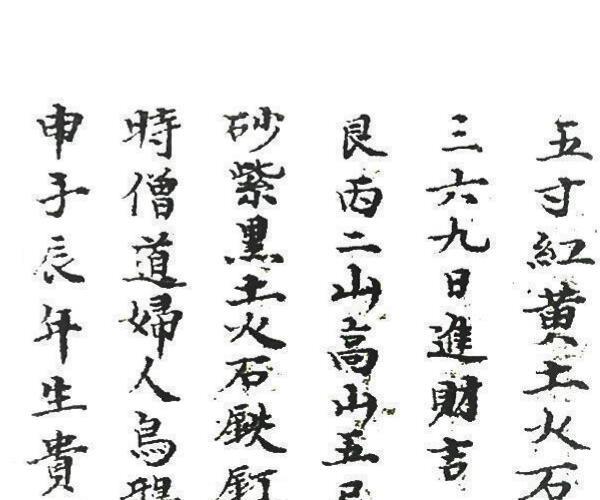 五寸紅黄土火石
三六九日進財吉
艮丙二山高山五
砂紫黑土火石鉄釘
時僧道婦人烏鴉
申子辰年生貴